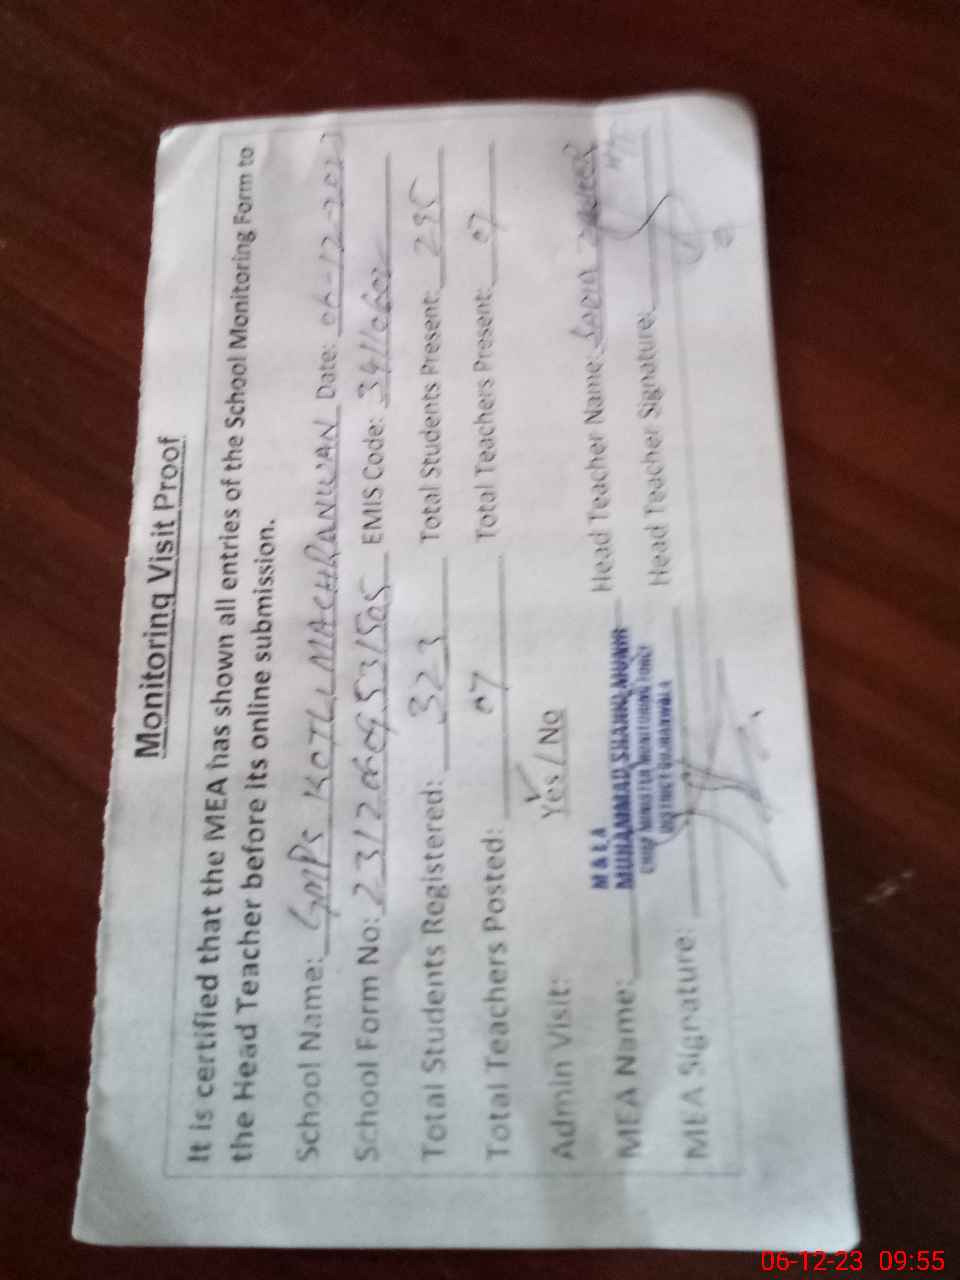 Monitoring Visit Proof
It is certified that the MEA has shown all entries of the School Monitoring Form to
the Head Teacher before its online submission.
School Name: GMPS KOTLI MACHRANWAN Date: 06-12-2023
School Form No: 23120609531505 EMIS Code: 34110602
Total Students Registered: 323 Total Students Present: 295
Total Teachers Posted: 07 Total Teachers Present: 07
Admin Visit: Yes / No
M & E A
MEA Name: MUHAMMAD SHAHID MUNIR Head Teacher Name:
CHIEF MINISTER MONITORING FORCE
DISTRICT GUJRANWALA
MEA Signature: Head Teacher Signature:
06-12-23 09:55